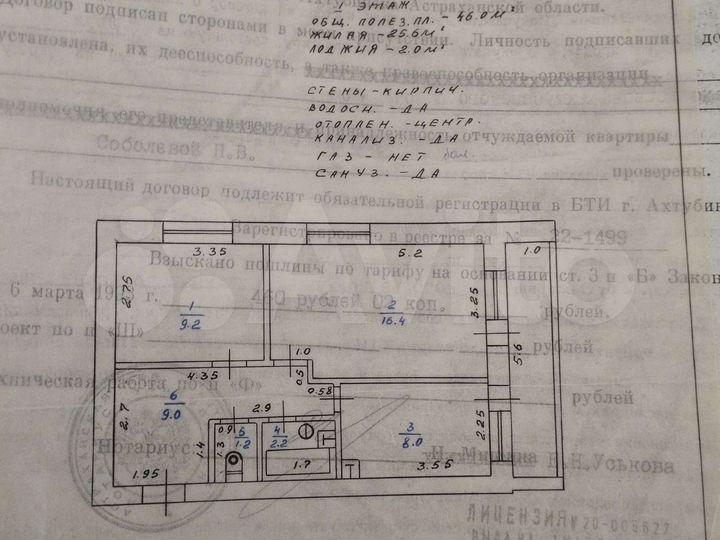 I ЭТАЖ
ОБЩ. ПОЛЕЗ. ПЛ. - 46.0 м²
ЖИЛАЯ - 25.6 м²
ЛОДЖИЯ - 2.0 м²
Астраханской области.
Договор подписан сторонами в Личность подписавших
установлена, их дееспособность, а также правоспособность организации
СТЕНЫ - КИРПИЧ.
ВОДОСН. - ДА
ОТОПЛЕН. - ЦЕНТР.
КАНАЛИЗ. - ДА
ГАЗ - НЕТ
САНУЗ. - ДА
его представителя и принадлежность отчуждаемой квартиры
Соболевой Н.В.
проверены.
Настоящий договор подлежит обязательной регистрации в БТИ г. Ахтубин
Зарегистрировано в реестре за № 22-1499
Взыскано пошлины по тарифу на основании ст. 3 п «Б» Закон
6 марта 19 г. 460 рублей 02 коп. рублей.
по п «Ш» рублей
техническая работа по п «Ф» рублей
Нотариус
Н.Н.Ускова
ЛИЦЕНЗИЯ № 20-008627
Avito
3.35
5.2
1.0
2.75
1
9.2
2
16.4
3.25
5.6
1.0
0.5
0.58
4.35
6
9.0
2.7
2.9
0.9
5
1.2
4
2.2
3
8.0
2.25
1.4
1.3
1.7
3.55
1.95